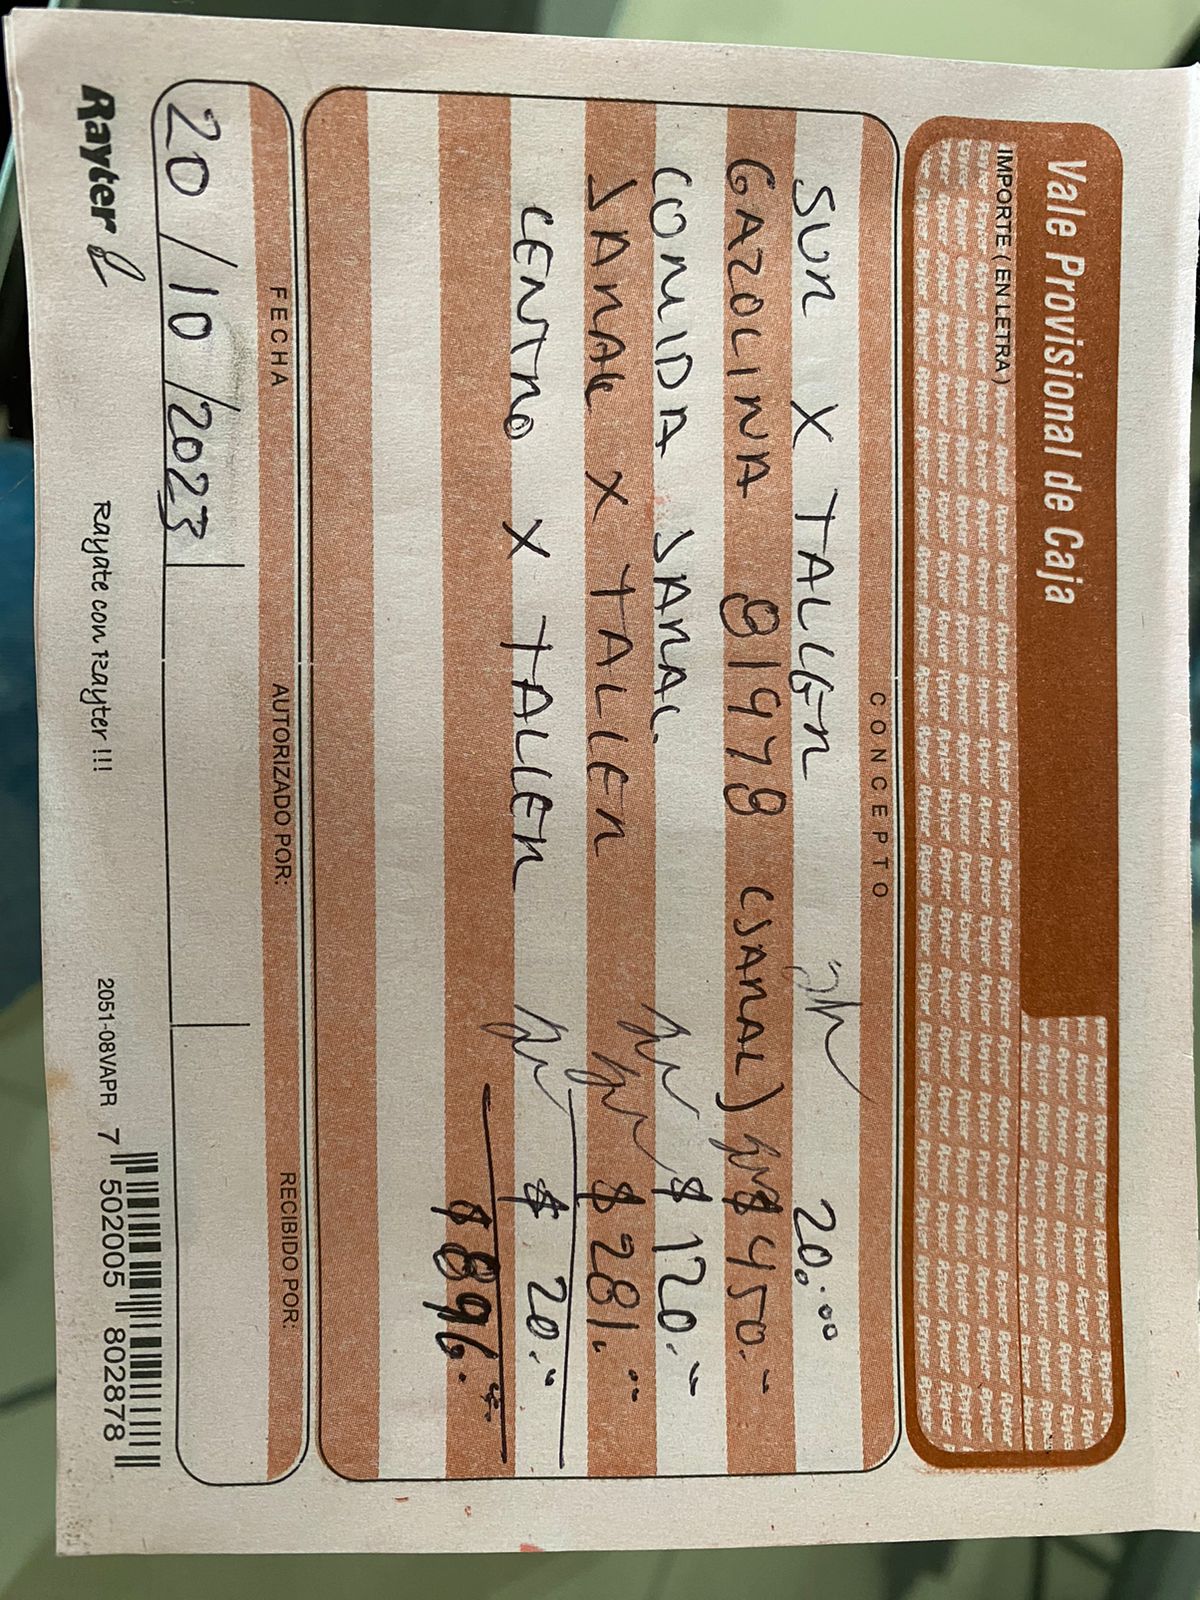 Vale Provisional de Caja
IMPORTE ( EN LETRA )
CONCEPTO
SUR X TALLER 20.00
GAZOLINA 81978 (JARAL) $ 450.-
COMIDA JARAL. $ 120.-
JARAL X TALLER $ 281.-
CENTRO X TALLER $ 20.-
$ 896.-
FECHA
AUTORIZADO POR:
RECIBIDO POR:
20/10/2023
Rayter
Rayate con Rayter !!!
2051-08VAPR
7 502005 802878